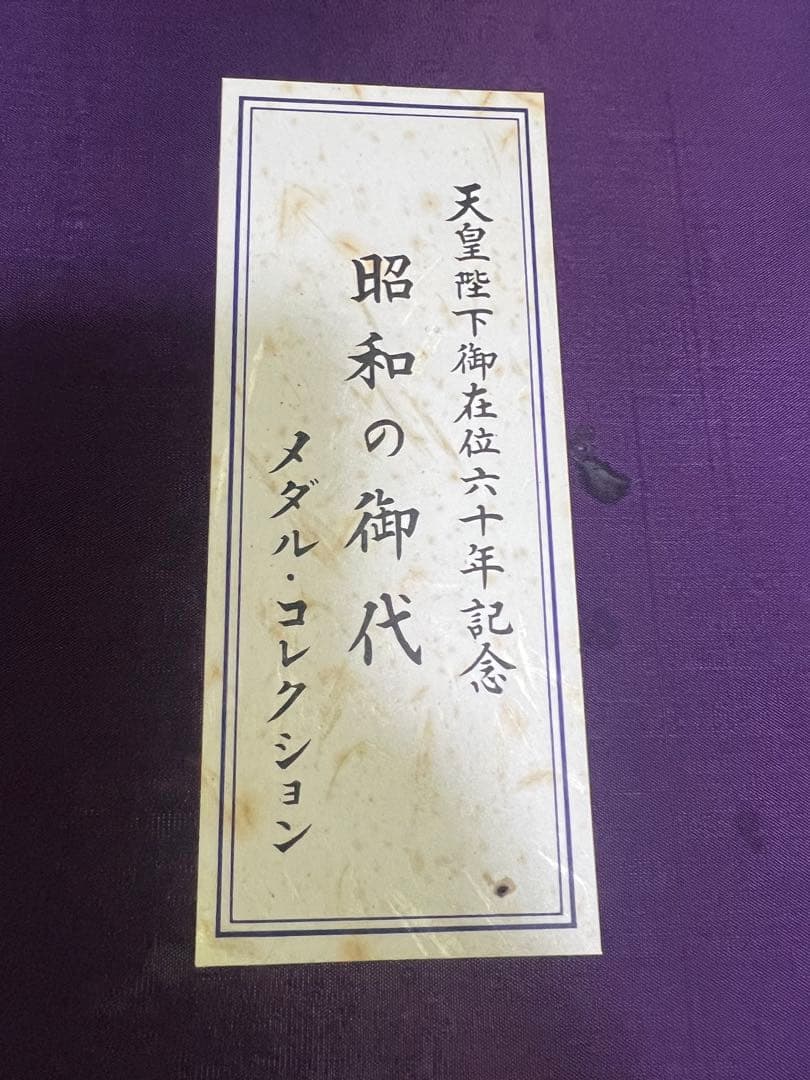 天皇陛下御在位六十年記念
昭和の御代
メダル・コレクション